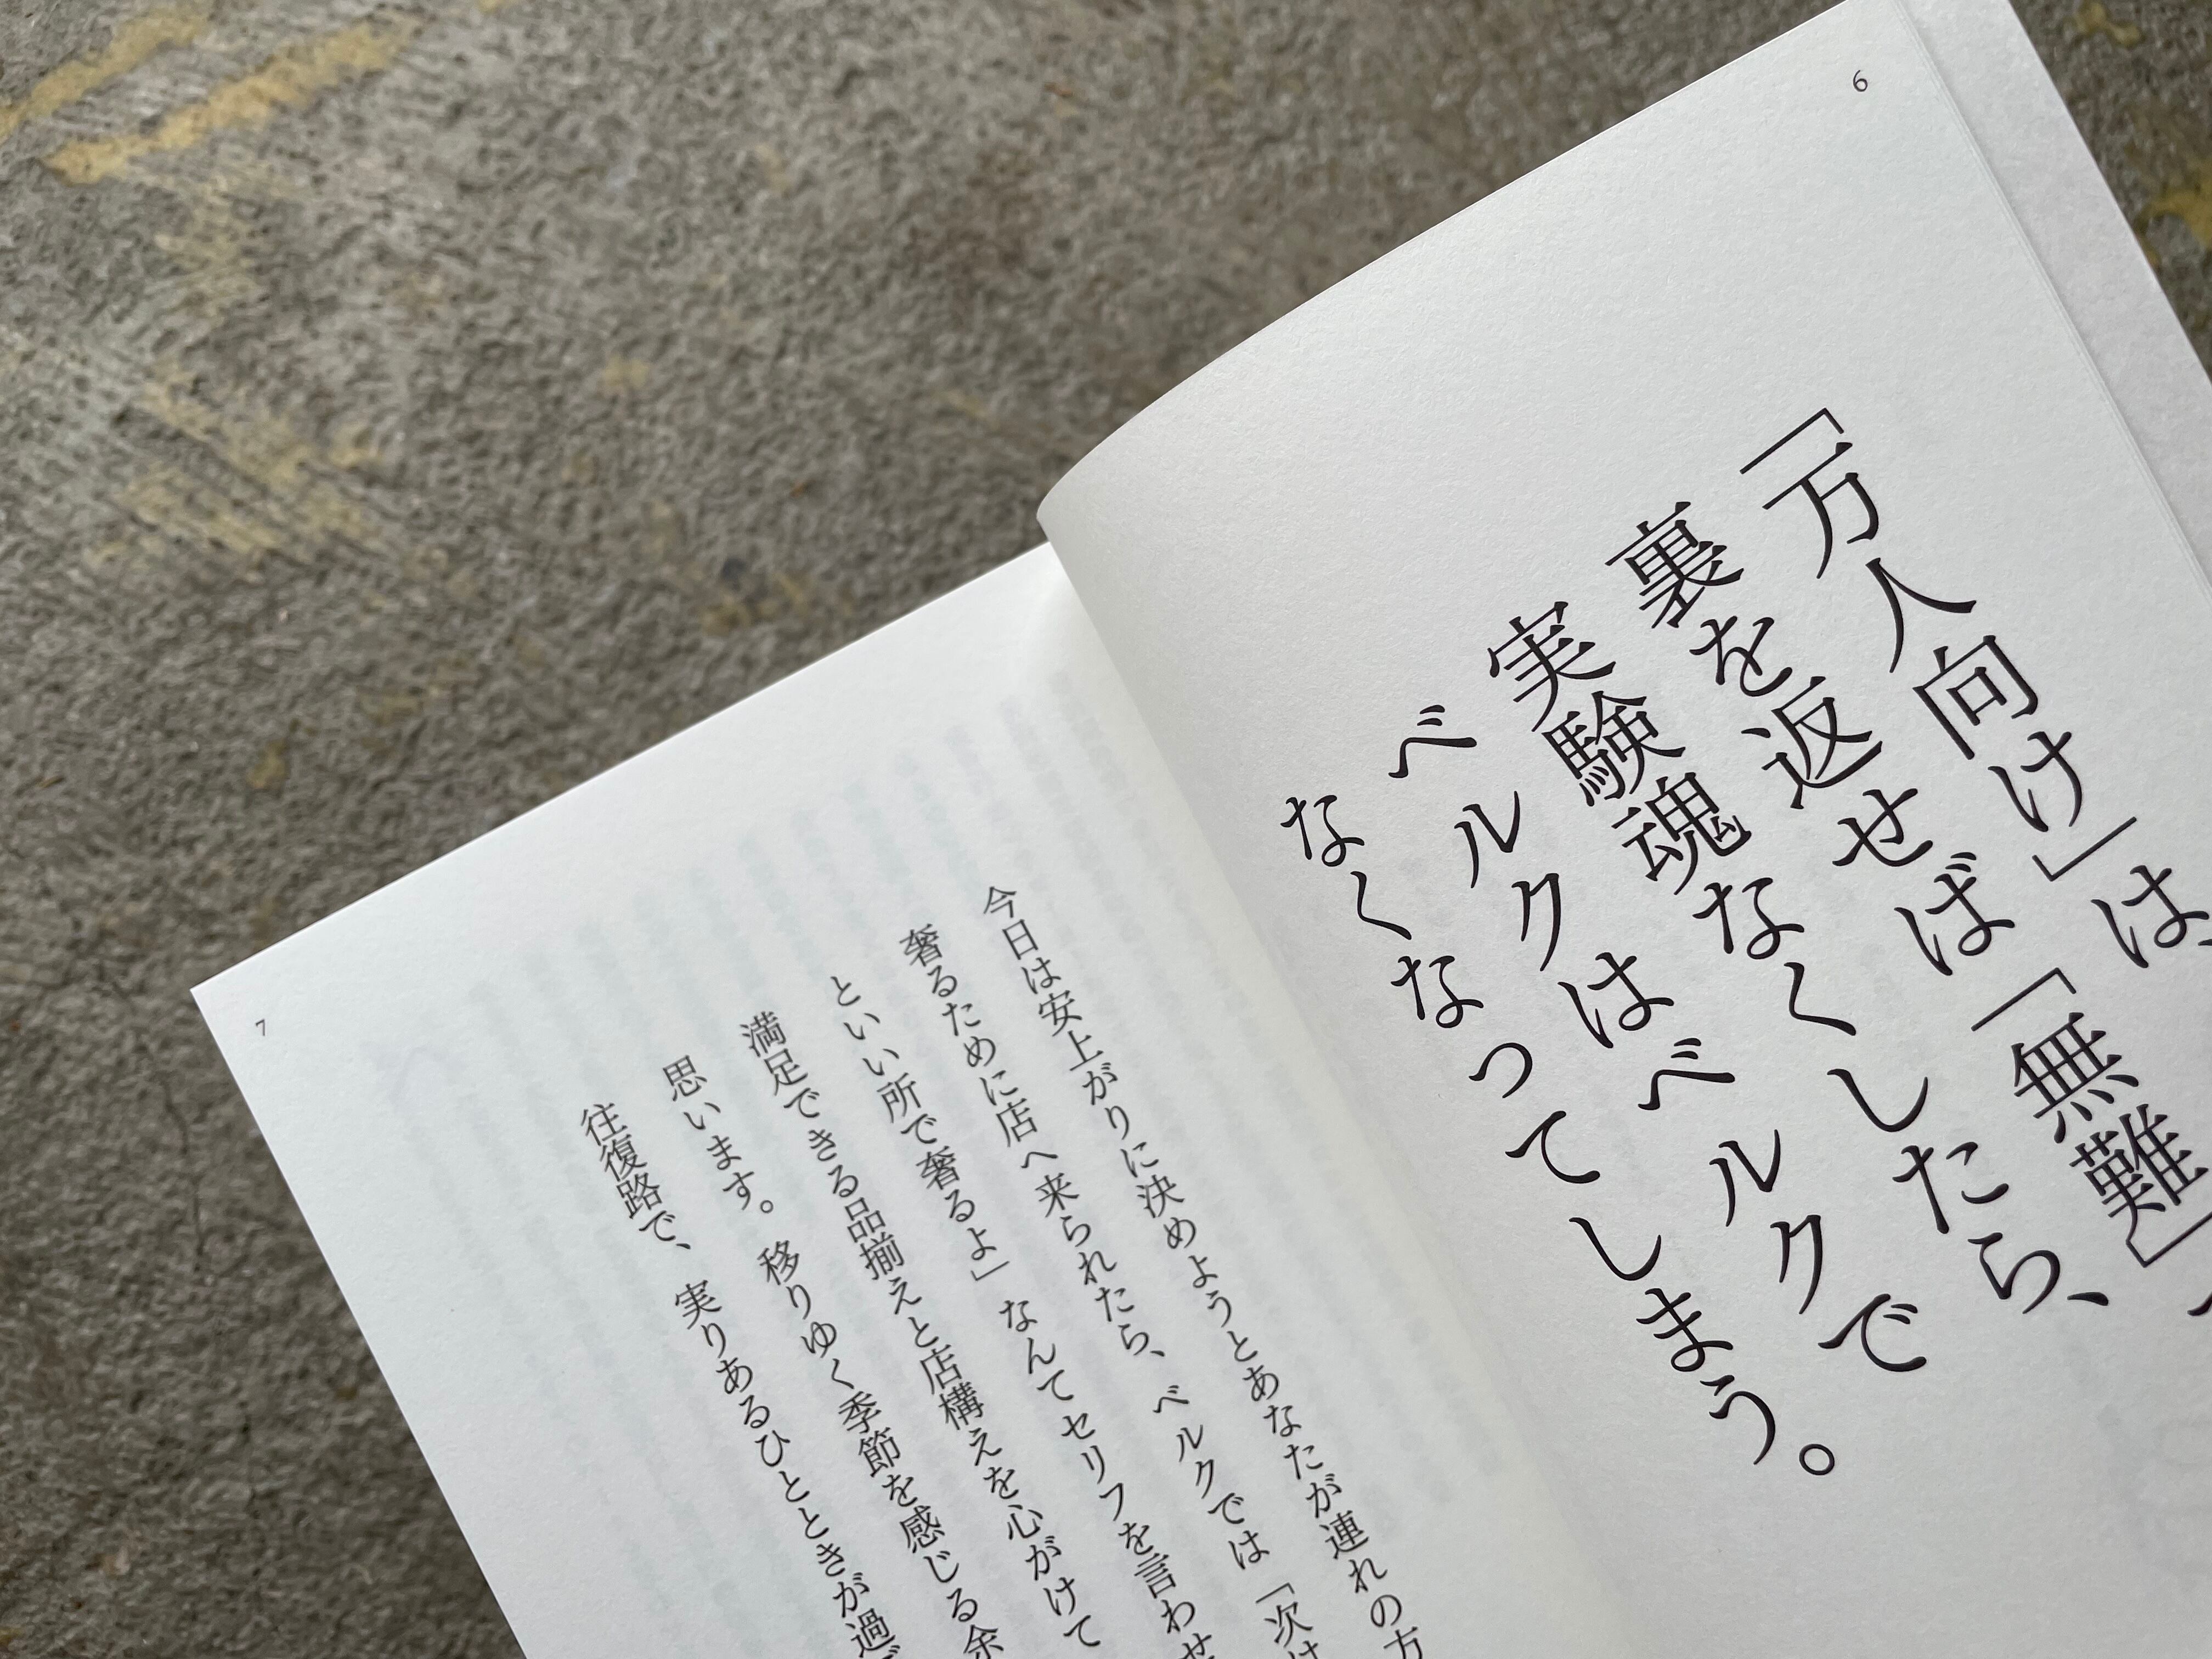 6
「万人向け」は、
裏を返せば「無難」
実験魂なくしたら、
ベルクはベルクで
なくなってしまう。
今日は安上がりに決めようとあなたが連れの方
奢るために店へ来られたら、ベルクでは「次は
といい所で奢るよ」なんてセリフを言わせ
満足できる品揃えと店構えを心がけて
思います。移りゆく季節を感じる余
往復路で、実りあるひとときが過
7